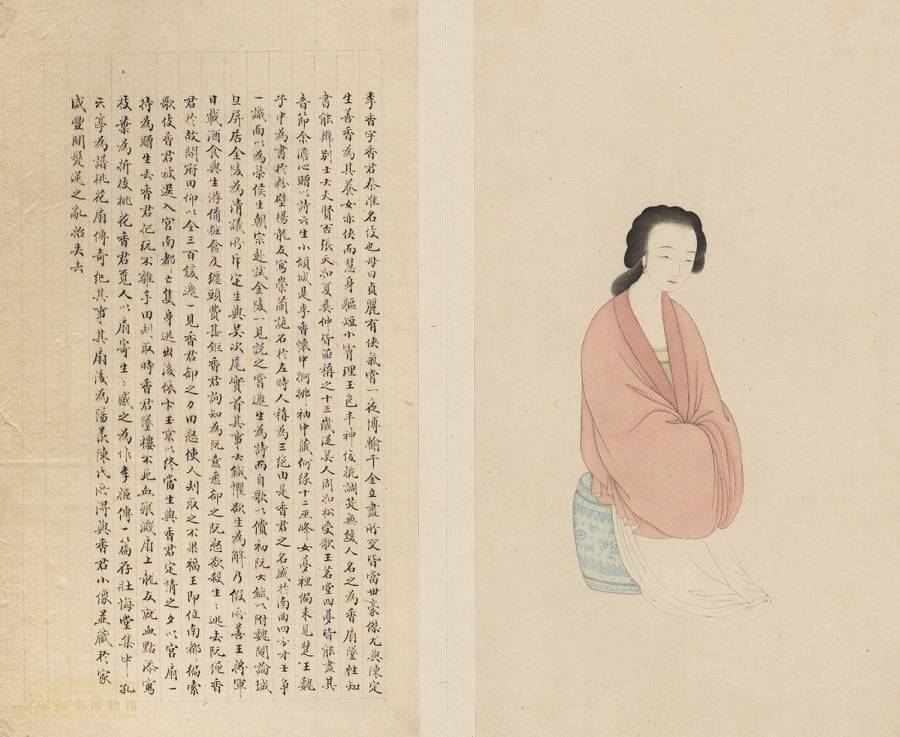 李香字香君秦淮名伎也母曰貞麗有俠氣嘗一夜博輸千金立盡所交皆當世豪傑尤與陳定
生善香為其養女亦俠而慧身軀短小膚理玉色丰神俊婉調笑無雙人名之為香扇墜性知
書能辨別士大夫賢否張天如夏彝仲皆亟稱之十三歲從吳人周如松受歌玉茗堂四夢皆能盡其
音節余澹心贈以詩云生小傾城是李香懷中婀娜袖中藏何緣十二巫峰女夢裡偏來見楚王魏
子中為書於粉壁楊龍友寫崇蘭詭石於左時人稱為三絕由是香君之名盛於南曲四方才士爭
一識面以為榮侯生朝宗赴試金陵一見悅之嘗邀生為詩而自歌以償初阮大鋮以附魏閹論城
旦屏居金陵為清議所斥定生與吳次尾實首其事大鋮懼欲生為解乃假所善王將軍
日載酒食與生游備粧奩及纏頭費甚鉅香君詢知為阮意悉卻之阮怒欲殺生生逃去阮緄香
君於故開府田仰以金三百鍰邀一見香君卻之力田怒使人刦取之不果福王即位南都徧索
歌伎香君被選入宮南都亡隻身逃出後依卞玉京以終當生與香君定情之夕以宮扇一
持為贈生去香君把玩不離手田刦取時香君墜樓不死血痕濺扇上龍友就血點添寫
枝葉為折枝桃花香君覓人以扇寄生生感之為作李姬傳一篇存壯悔堂集中孔
云亭為譜桃花扇傳奇紀其事其扇後為陽羨陳氏所得與香君小像並藏於家
咸豐間髮逆之亂始失去
中國國家博物館